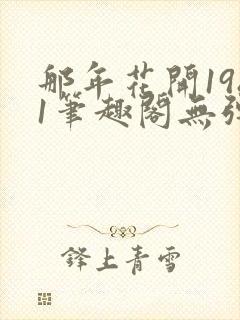 那年花開19
1筆趣閣無
鋒上青雪